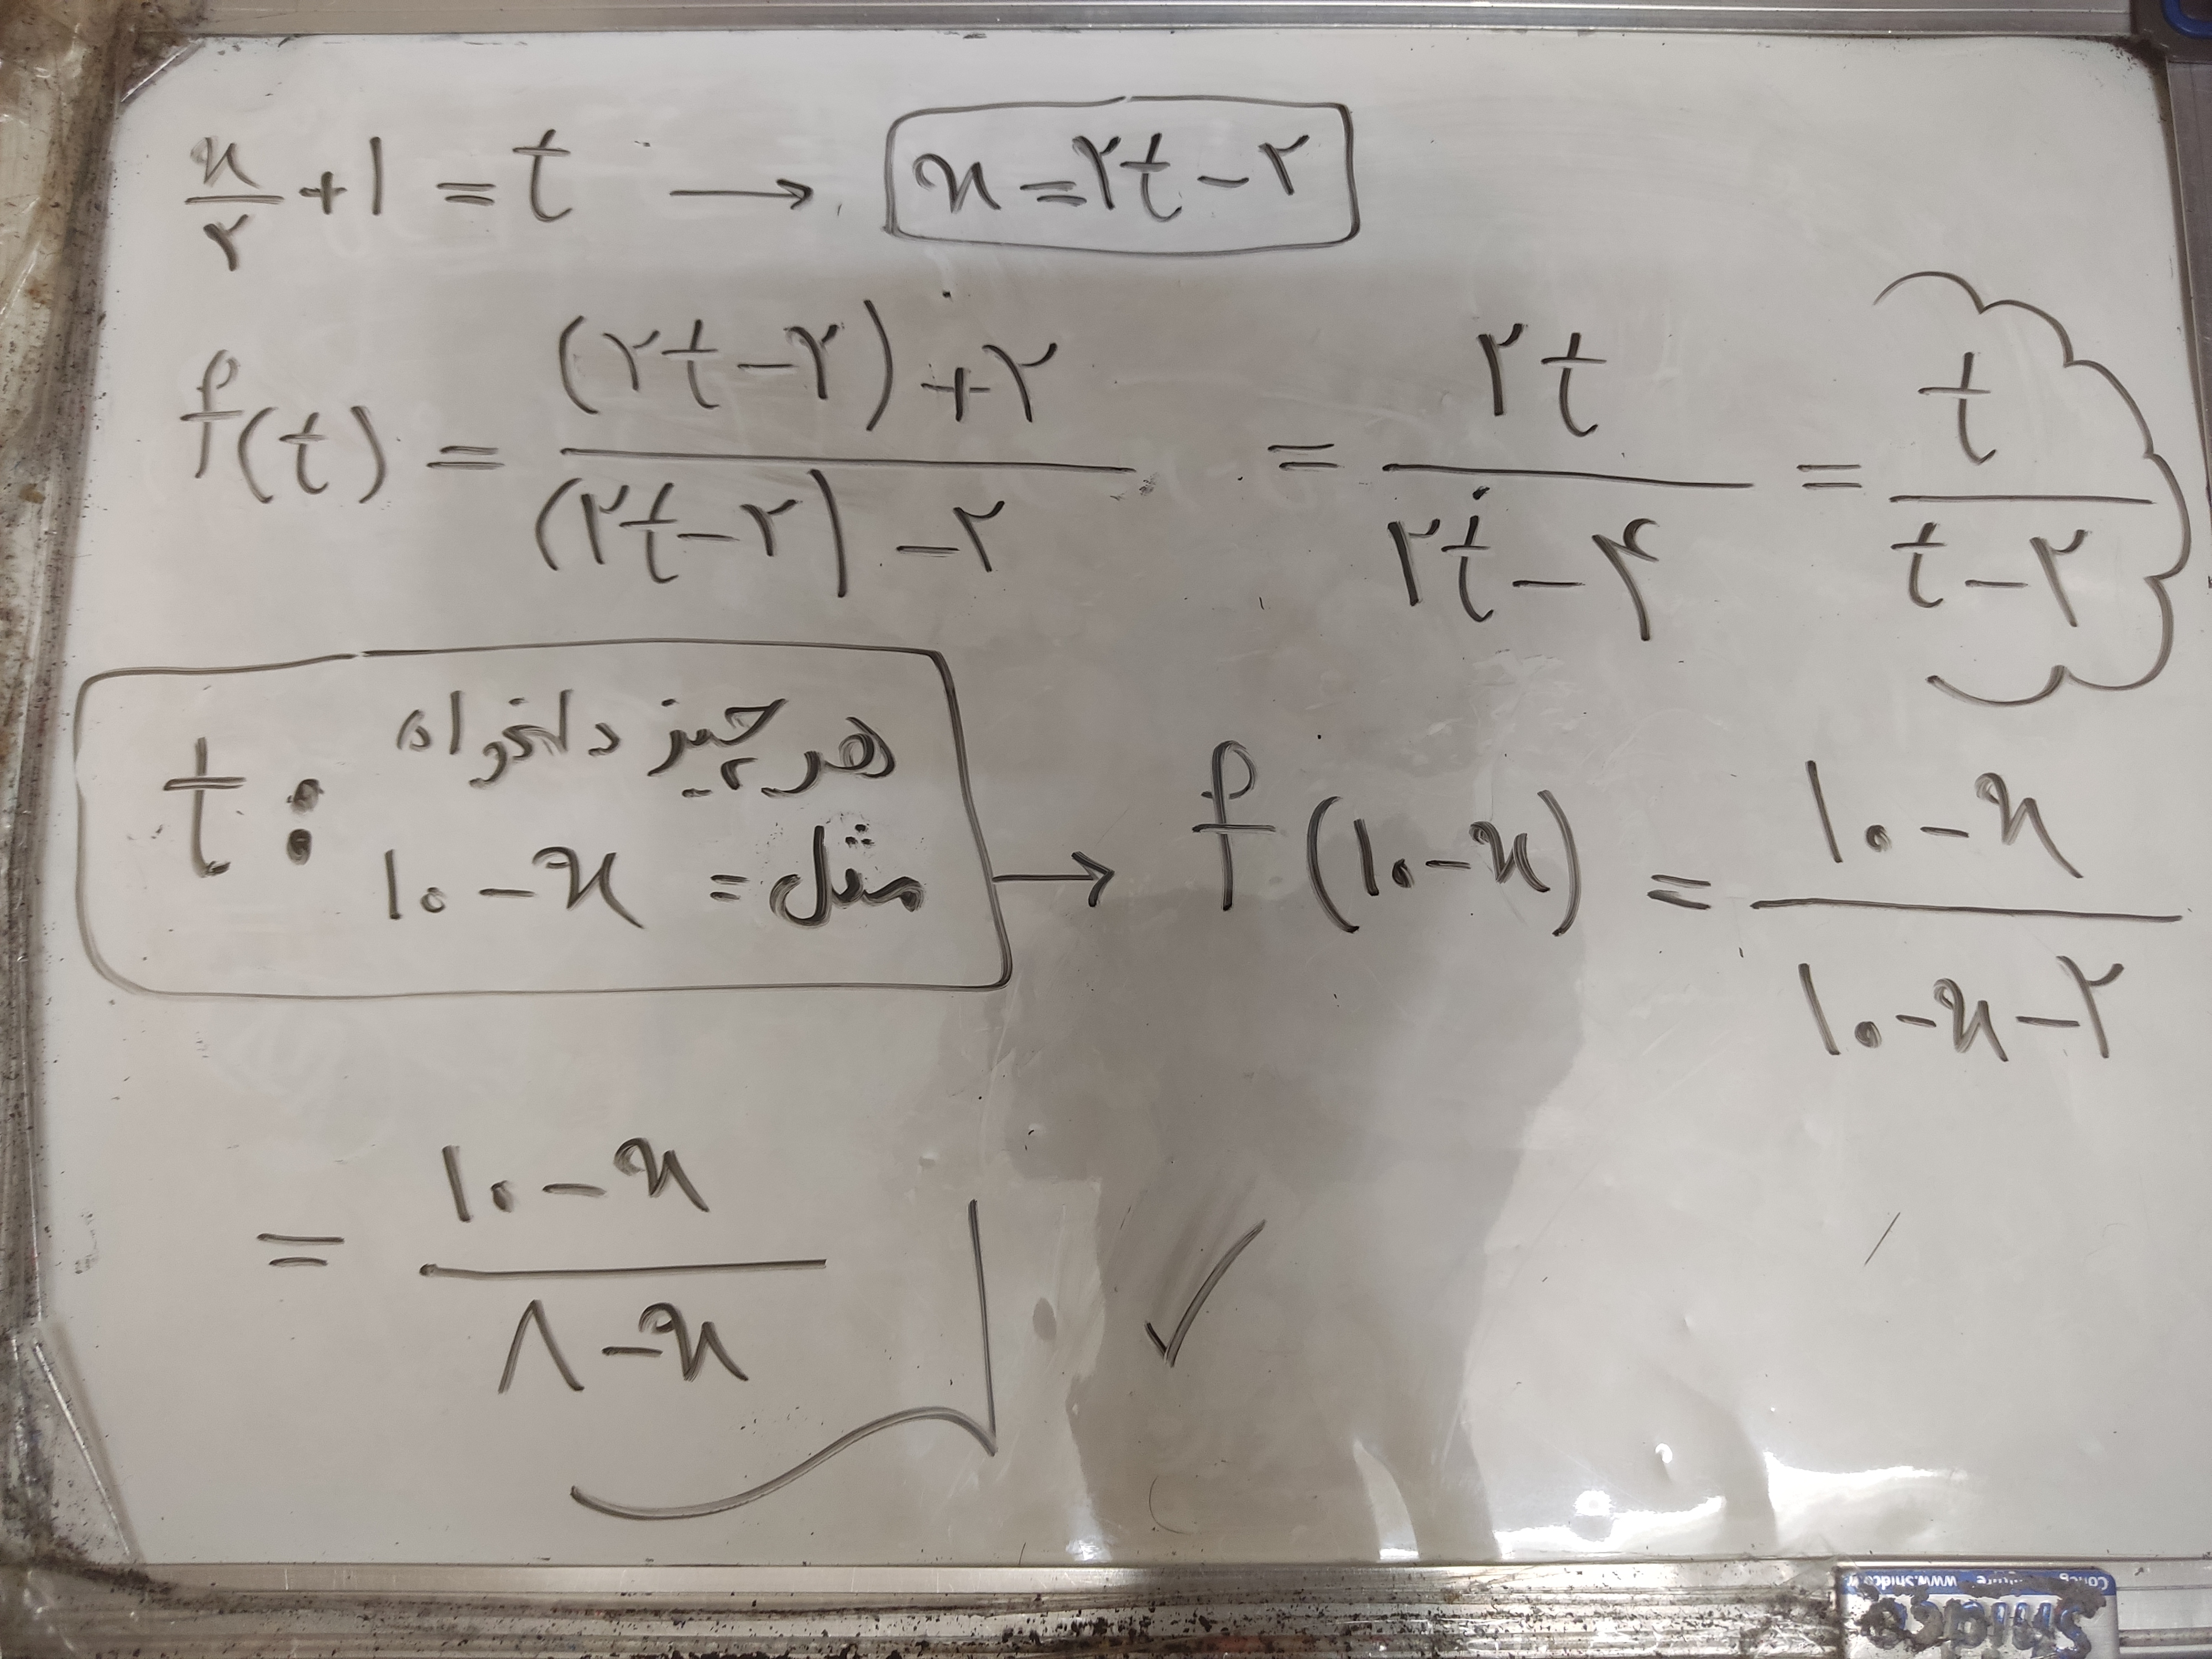 x/۲ + ۱ = t → x = ۲t - ۲
f(t) = ((۲t - ۲) + ۲) / ((۲t - ۲) - ۲) = ۲t / (۲t - ۴) = t / (t - ۲)
t : هر چیز دلخواه
مثل = ۱۰ - x → f(۱۰ - x) = (۱۰ - x) / (۱۰ - x - ۲)
= (۱۰ - x) / (۸ - x) ✓